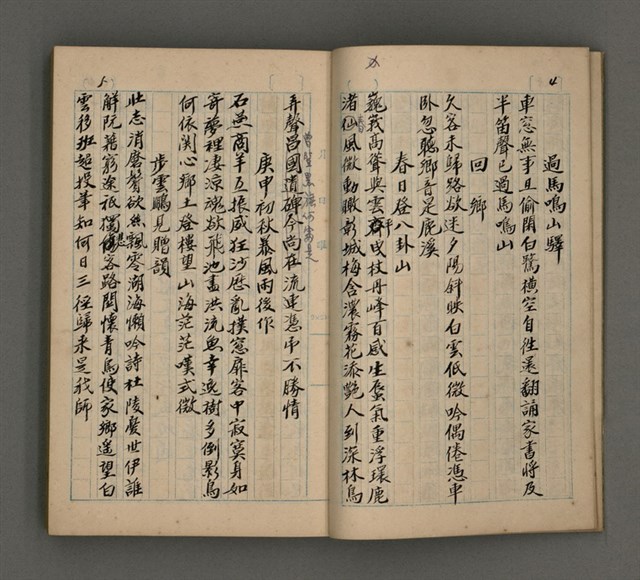 4
過馬鳴山驛
車窓無事且偷閒白鷺橫空自往還翻誦家書將及
半笛聲已過馬鳴山
回鄉
久客未歸路欲迷夕陽斜映白雲低微吟偶倦憑車
臥忽聽鄉音是鹿溪
春日登八卦山
巍莪高聳與雲齊曳杖丹峰百感生蜃氣重浮環鹿
渚仙風微動瞰彰城梅含濃霧花添艷人到深林鳥
5
弄聲呂國遺碑今尚在流連憑弔不勝情
庚申初秋暴風雨後作
石燕商羊互振威狂沙歷亂撲窓扉客中寂寞身如
寄夢裡淒涼魂欲飛池畫洪流魚幸逸樹多倒影鳥
何依関心鄉土登樓望山海茫茫嘆式微
步雲鵬見贈韻
壯志消磨鬢欲絲飄零湖海懶吟詩杜陵憂世伊誰
解阮籍窮途祇獨悲客路関懷青鳥使家鄉遙望白
雲移班超投筆知何日三徑歸來是我師